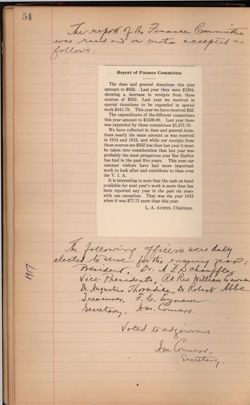 54
The report of the Finance Committee
was read and on motion accepted as
follows:
Report of Finance Committee
The dues and general donations this year
amount to $952. Last year they were $1304,
showing a decrease in receipts from these
sources of $352. Last year we received in
special donations to be expended in special
work $441.70. This year we have received $87.
The expenditures of the different committees
this year amount to Last year there
was expended by these committees
We have collected in dues and general dona-
tions nearly the same amount as was received
in 1914 and 1915, and while our receipts from
these sources are $352 less than last year it must
be taken into consideration that last year was
probably the most prosperous year Bar Harbor
has had in the past five years. This year our
summer visitors have had more important
work to look after and contribute to than even
the V. I. A.
It is interesting to note that the cash on hand
available for next year's work is more than has
been reported any year in the past six years
with one exception. That was the year 1913
when it was $77.71 more than this year.
L. A. Austin, Chairman.
The following officers were duly
elected to serve for the ensuing year;
President, Dr. A. F. Schauffler
Vice-Presidents, Rt Rev William Lawrence
Dr. Augustus Thorndike, Dr Robert Abbe
Treasurer, F. C. Lynam
Secretary, Wm. Conners.
1917
Voted to adjourn
Wm Conners,
Secretary